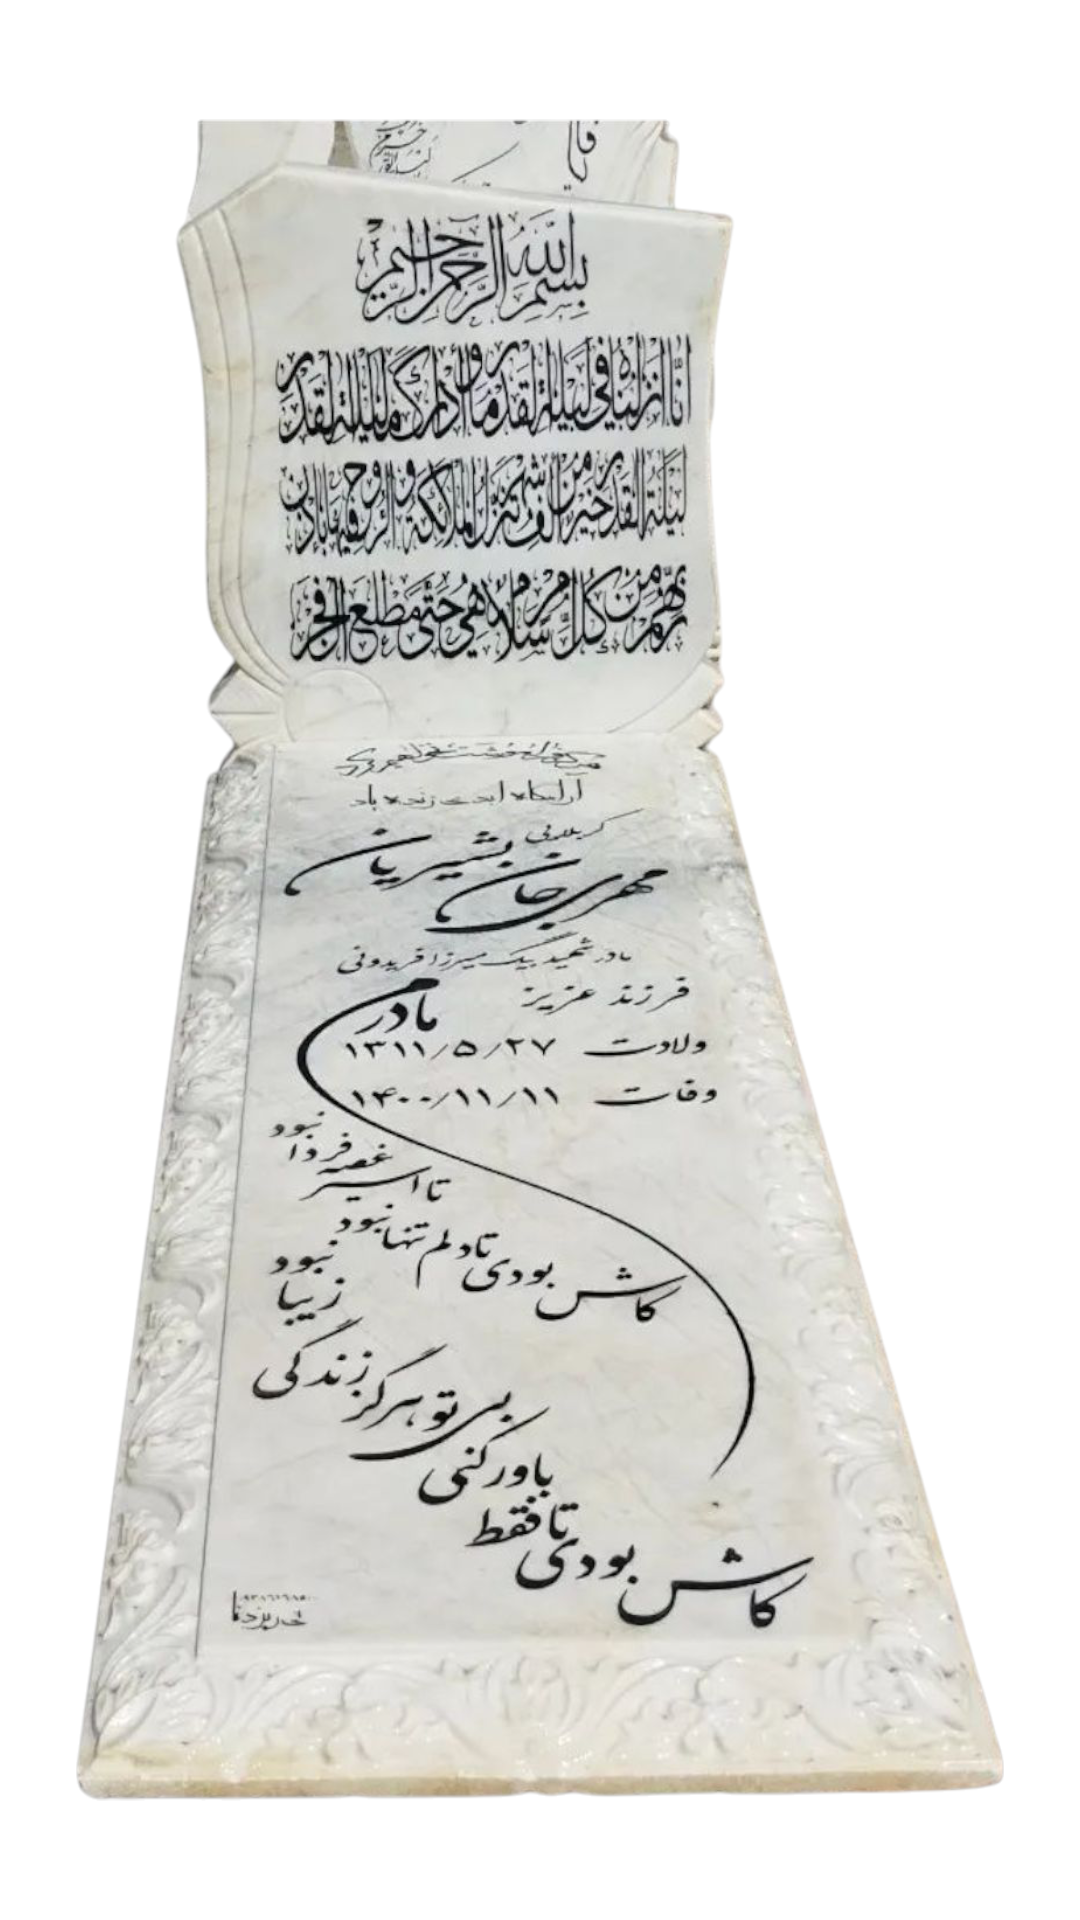 بِسْمِ اللَّهِ الرَّحْمنِ الرَّحيمِ
اِنّا اَنْزَلْناهُ في لَيْلَةِ الْقَدْرِ وَ ما أَدْراكَ ما لَيْلَةُ الْقَدْرِ
لَيْلَةُ الْقَدْرِ خَيْرٌ مِنْ أَلْفِ شَهْرٍ تَنَزَّلُ الْمَلائِكَةُ وَ الرُّوحُ فيها بِإِذْنِ
رَبِّهِمْ مِنْ كُلِّ أَمْرٍ سَلامٌ هِيَ حَتّى مَطْلَعِ الْفَجْرِ
آرامگاه ابدی زنده یاد
کربلائی
مهری جان بشیریان
مادر شهید بیک میرزا فریدونی
فرزند عزیز
مادرم
ولادت ۱۳۱۱/۵/۲۷
وفات ۱۴۰۰/۱۱/۱۱
کاش بودی تا دلم تنها نبود
تا اسیر غصه فردا نبود
کاش بودی تا فقط باور کنی
بی تو هرگز زندگی زیبا نبود